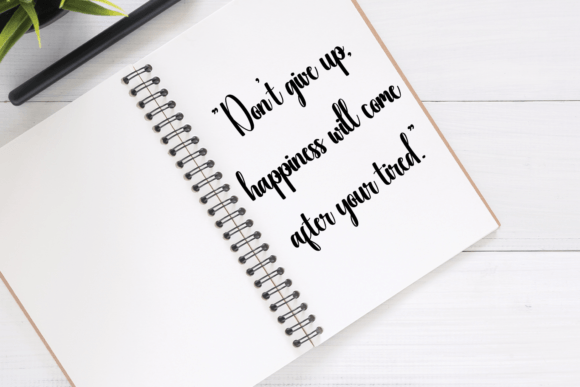 "Don't give up,
happiness will come
after your tired."